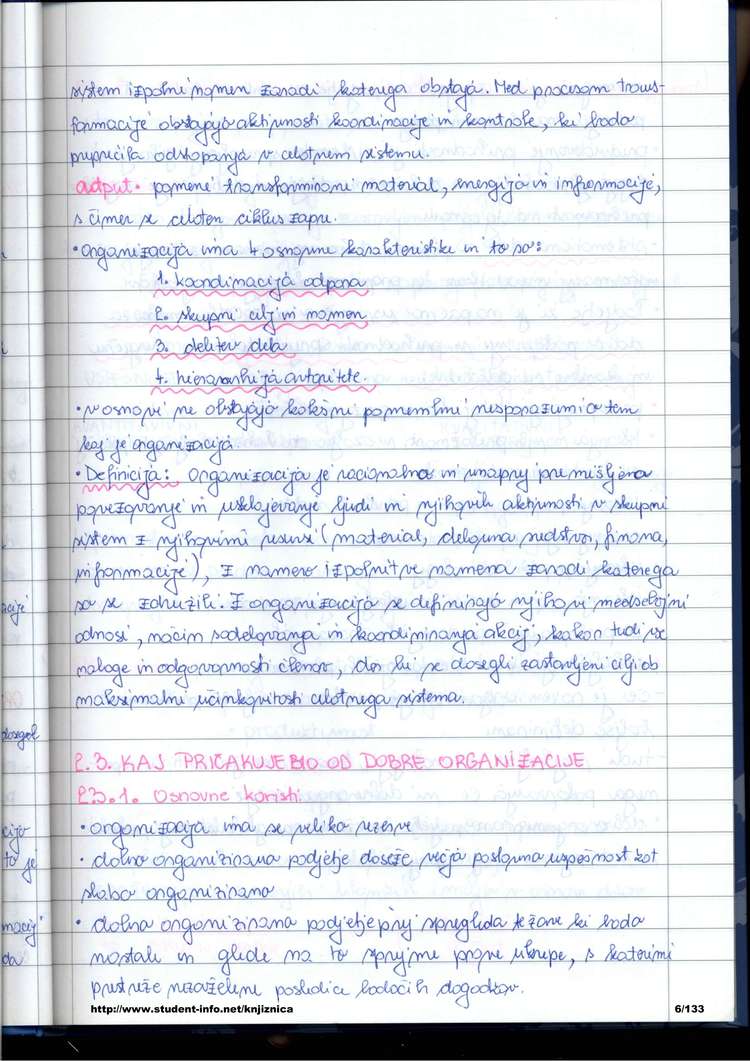 sistem izpolni namen zaradi katerega obstaja. Med procesom trans-
formacije obstajajo aktivnosti koordinacije in kontrole, ki bodo
preprečila odstopanja v celotnem sistemu.
output • pomeni transformirani material, energija in informacije,
s čimer se celoten ciklus zapre.
• Organizacija ima 4 osnovne karakteristike in to so:
1. koordinacija odpora
2. skupni cilj in namen
3. delitev dela
4. hierarhija avtoritete.
• v osnovi ne obstajajo kakšni pomembni nesporazumi o tem
kaj je organizacija.
• Definicija: Organizacija je racionalno in vnaprej premišljeno
povezovanje in usklajevanje ljudi in njihovih aktivnosti v skupni
sistem z njihovimi resursi (material, delovna sredstva, finance,
informacije), z namero izpolnitve namena zaradi katerega
so se združili. Z organizacijo se definirajo njihovi medsebojni
odnosi, način sodelovanja in koordiniranja akcij, kakor tudi vse
naloge in odgovornosti članov, da bi se dosegli zastavljeni cilji ob
maksimalni učinkovitosti celotnega sistema.
2.3. KAJ PRIČAKUJEMO OD DOBRE ORGANIZACIJE
2.3.1. Osnovne koristi
• organizacija ima še velike rezerve
• dobro organizirano podjetje doseže večjo poslovno uspešnost kot
slabo organizirano
• dobro organizirano podjetje prej spregleda težave ki bodo
nastale in glede na to sprejme prave ukrepe, s katerimi
prestreže nezaželene posledice bodočih dogodkov.
acije
dosegel
cijo
to je
macij
da
http://www.student-info.net/knjiznica 6/133